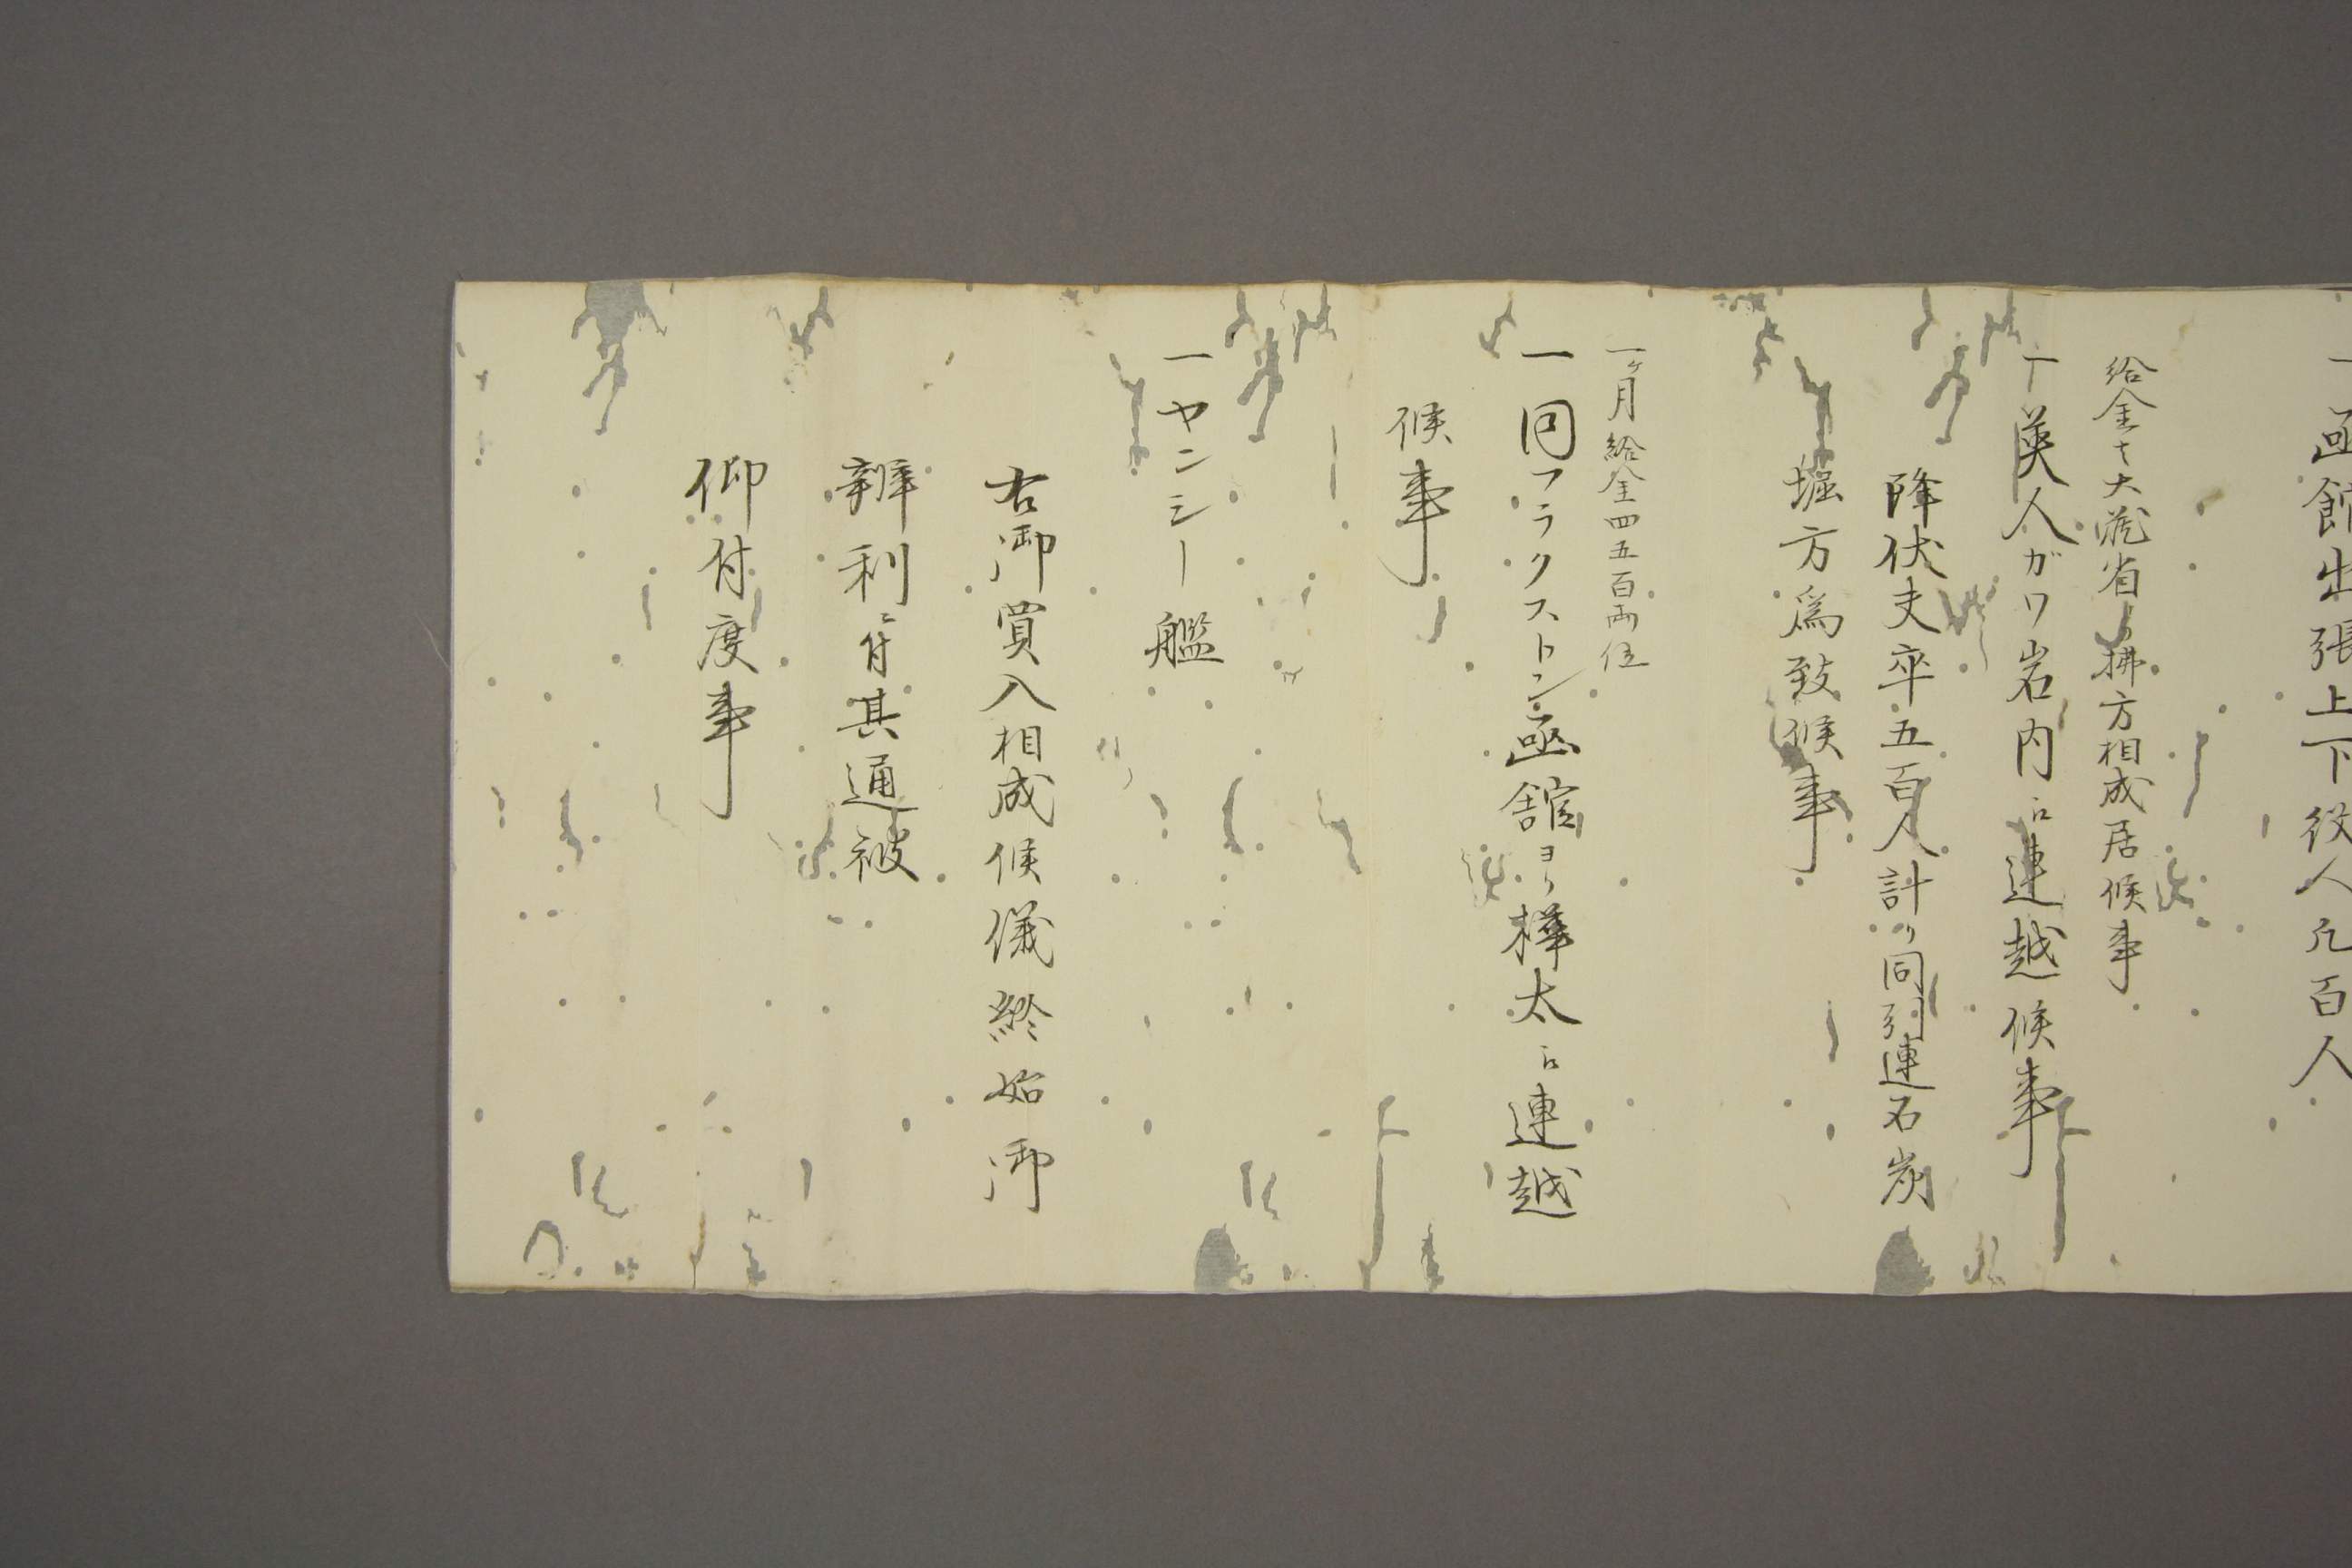 一函館出張上下役人凡百人
給金は大蔵省ゟ拂方相成居候事
一英人ガワ岩内江連越候事
降伏夫卒五百人計リ同引連石炭
堀方為致候事
一ケ月給金四五百両位
一同フラクストン函舘ヨリ樺太江連越
候事
一ヤンシー艦
右御買入相成候儀終始御
辨利ニ付其通被
仰付度事